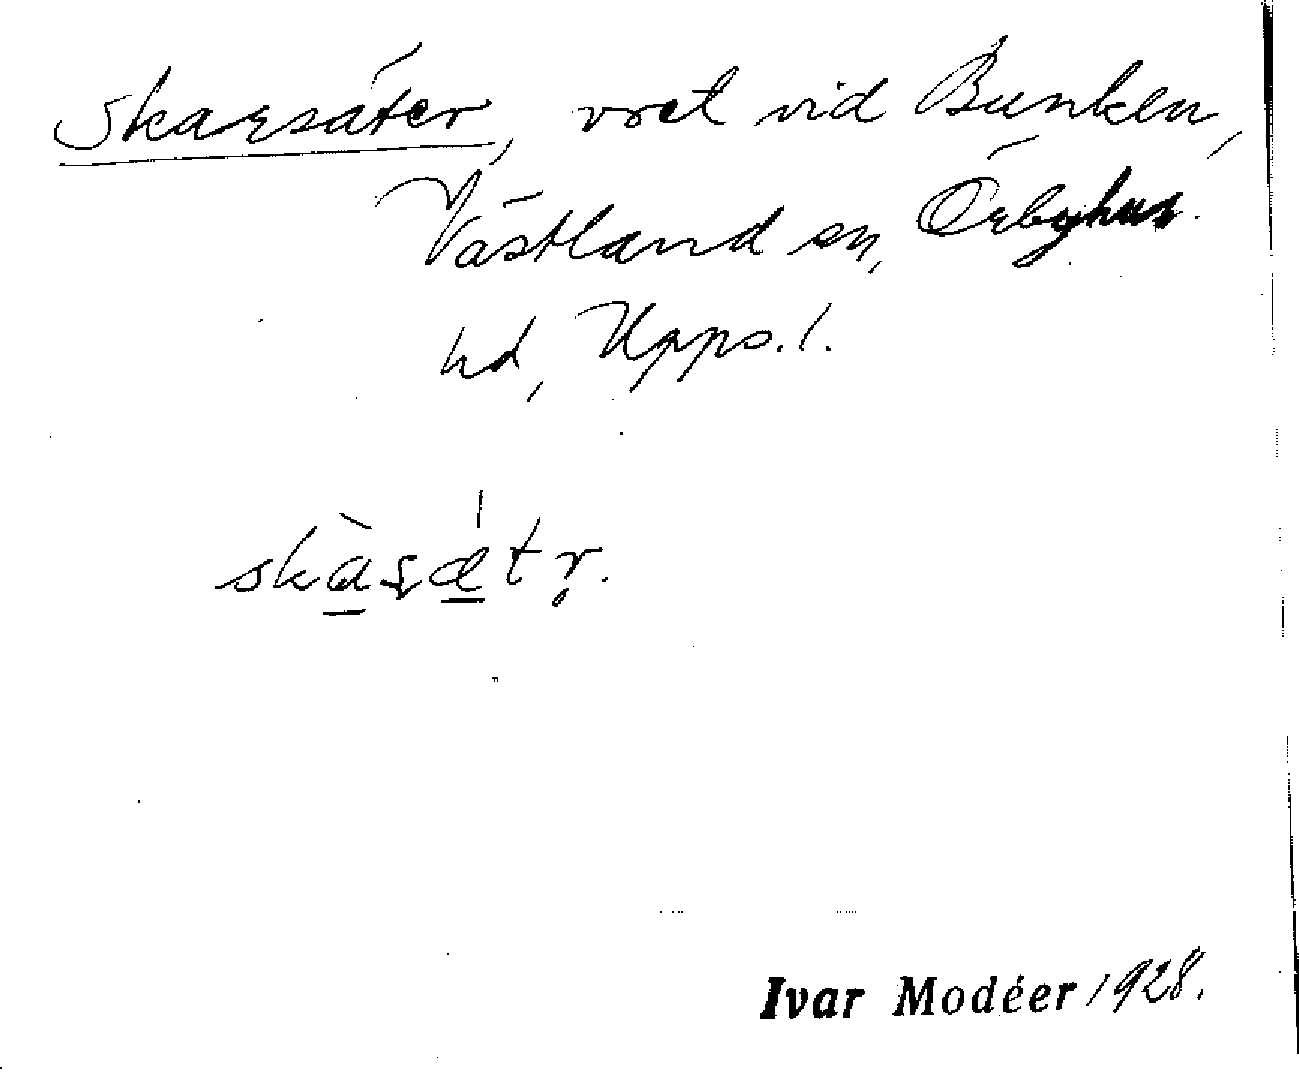 Skarsäter, vret vid Bunken,
Västland sn, Örbyhus
hd, Upps. l.
skàsætr.
Ivar Modéer 1928.